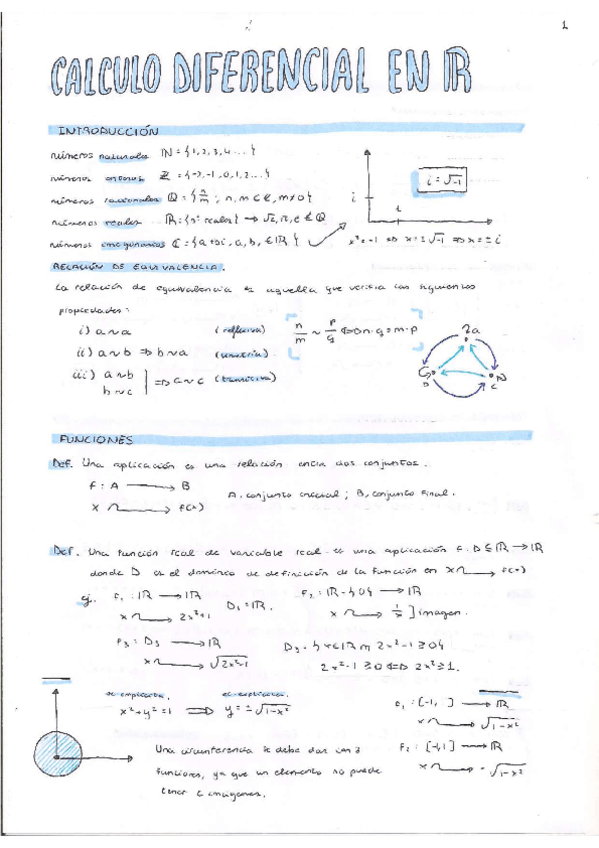 1
CALCULO DIFERENCIAL EN ℝ
INTRODUCCIÓN
números naturales ℕ = {1, 2, 3, 4 ... }
números enteros ℤ = {-2, -1, 0, 1, 2 ... }
números racionales ℚ = { n/m ; n, m ∈ ℤ, m ≠ 0 }
números reales ℝ = {nº reales} → √2, π, e ∉ ℚ
números imaginarios ℂ = {a + bi, a, b, ∈ ℝ }
i = √-1
i
1
x² = -1 ⇒ x = ±√-1 ⇒ x = ± i
RELACIÓN DE EQUIVALENCIA.
La relación de equivalencia es aquella que verifica las siguientes
propiedades:
i) a ~ a (reflexiva)
ii) a ~ b ⇒ b ~ a (simetría)
iii) a ~ b
b ~ c ⇒ a ~ c (transitiva)
n/m ~ p/q ⇔ n·q = m·p
a
b
c
FUNCIONES
Def. Una aplicación es una relación entre dos conjuntos.
f : A → B
x → f(x)
A, conjunto inicial ; B, conjunto final.
Def. Una función real de variable real es una aplicación f: D ⊆ ℝ → ℝ
donde D es el dominio de definición de la función en x → f(x)
ej. f₁ : ℝ → ℝ D₁ = ℝ. f₂ : ℝ - {0} → ℝ
x → 2x²+1 x → 1/x ] imagen.
f₃ : D₃ → ℝ D₃ = {x ∈ ℝ 2x²-1 ≥ 0}
x → √2x²-1 2x²-1 ≥ 0 ⇔ 2x² ≥ 1.
ec. implícita. ec. explícita.
x² + y² = 1 ⇒ y = ±√1-x²
f₁ : [-1, ] → ℝ
x → √1-x²
f₂ : [-1,1] → ℝ
x → -√1-x²
Una circunferencia se debe dar con 2
funciones, ya que un elemento no puede
tener 2 imágenes.